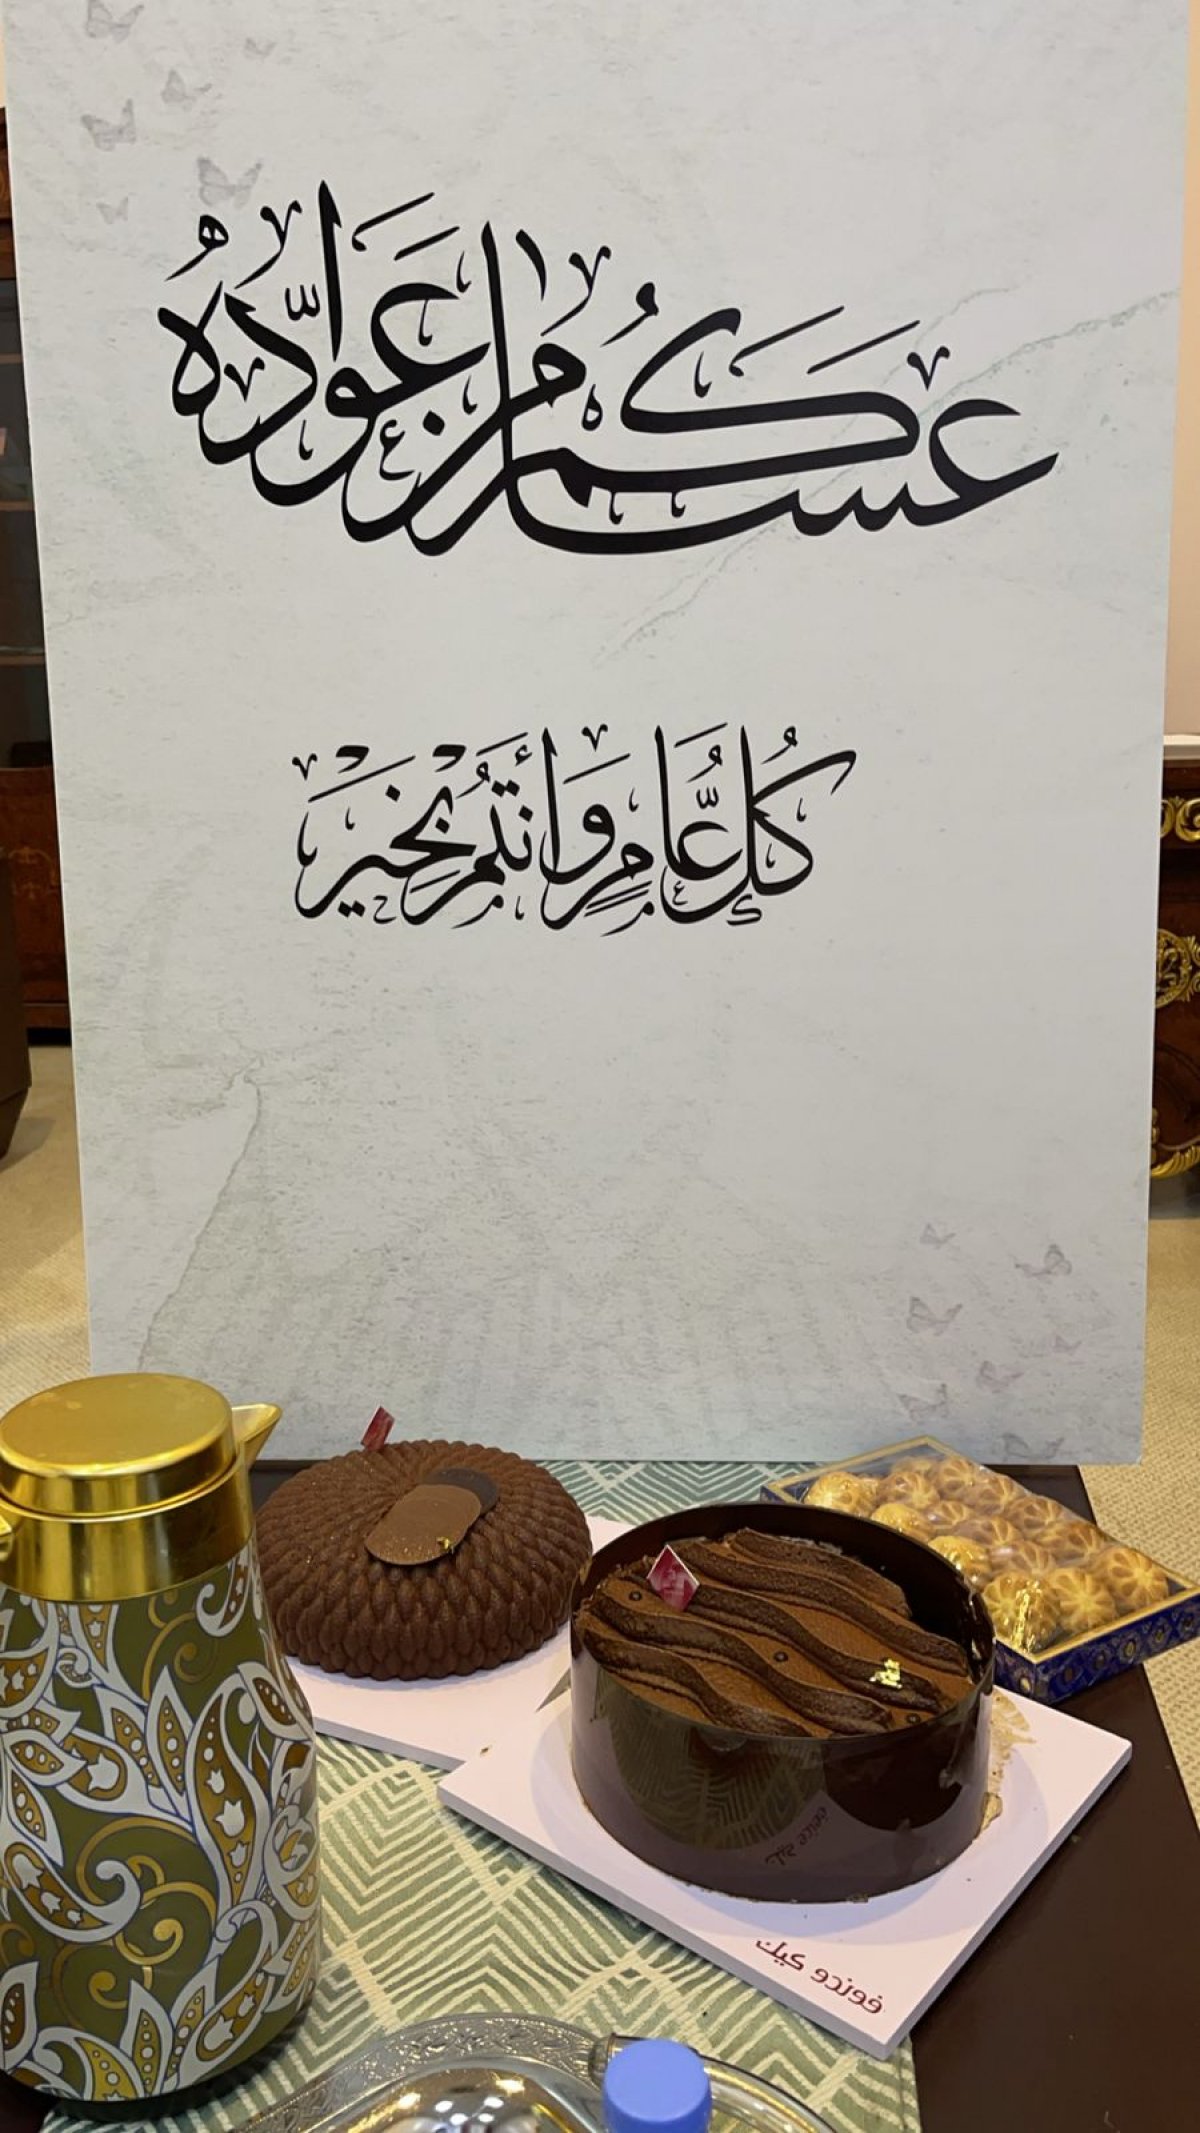 عَسَاكُم مِن عَوَّادُه
كُلُّ عَامٍ وَأَنْتُم بِخَيْر
فوندو كيك